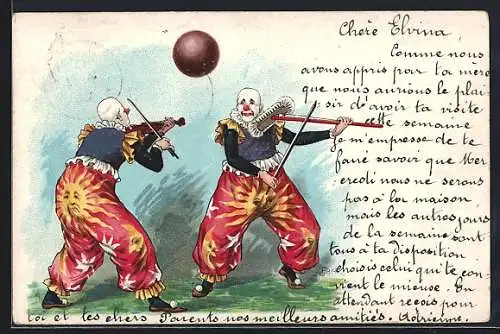 Chère Elvina,
Comme nous
avons appris par ta mère
que nous aurions le plai-
sir d'avoir ta visite
cette semaine
je m'empresse de te
faire savoir que Mer-
coledi nous ne serons
pas à la maison
mais les autres jours
de la semaine sont
tous à ta Disposition
choisis celui qui te con-
vient le mieux. En
attendant reçois pour
toi et tes chers Parents nos meilleurs amitiés. Adrienne.